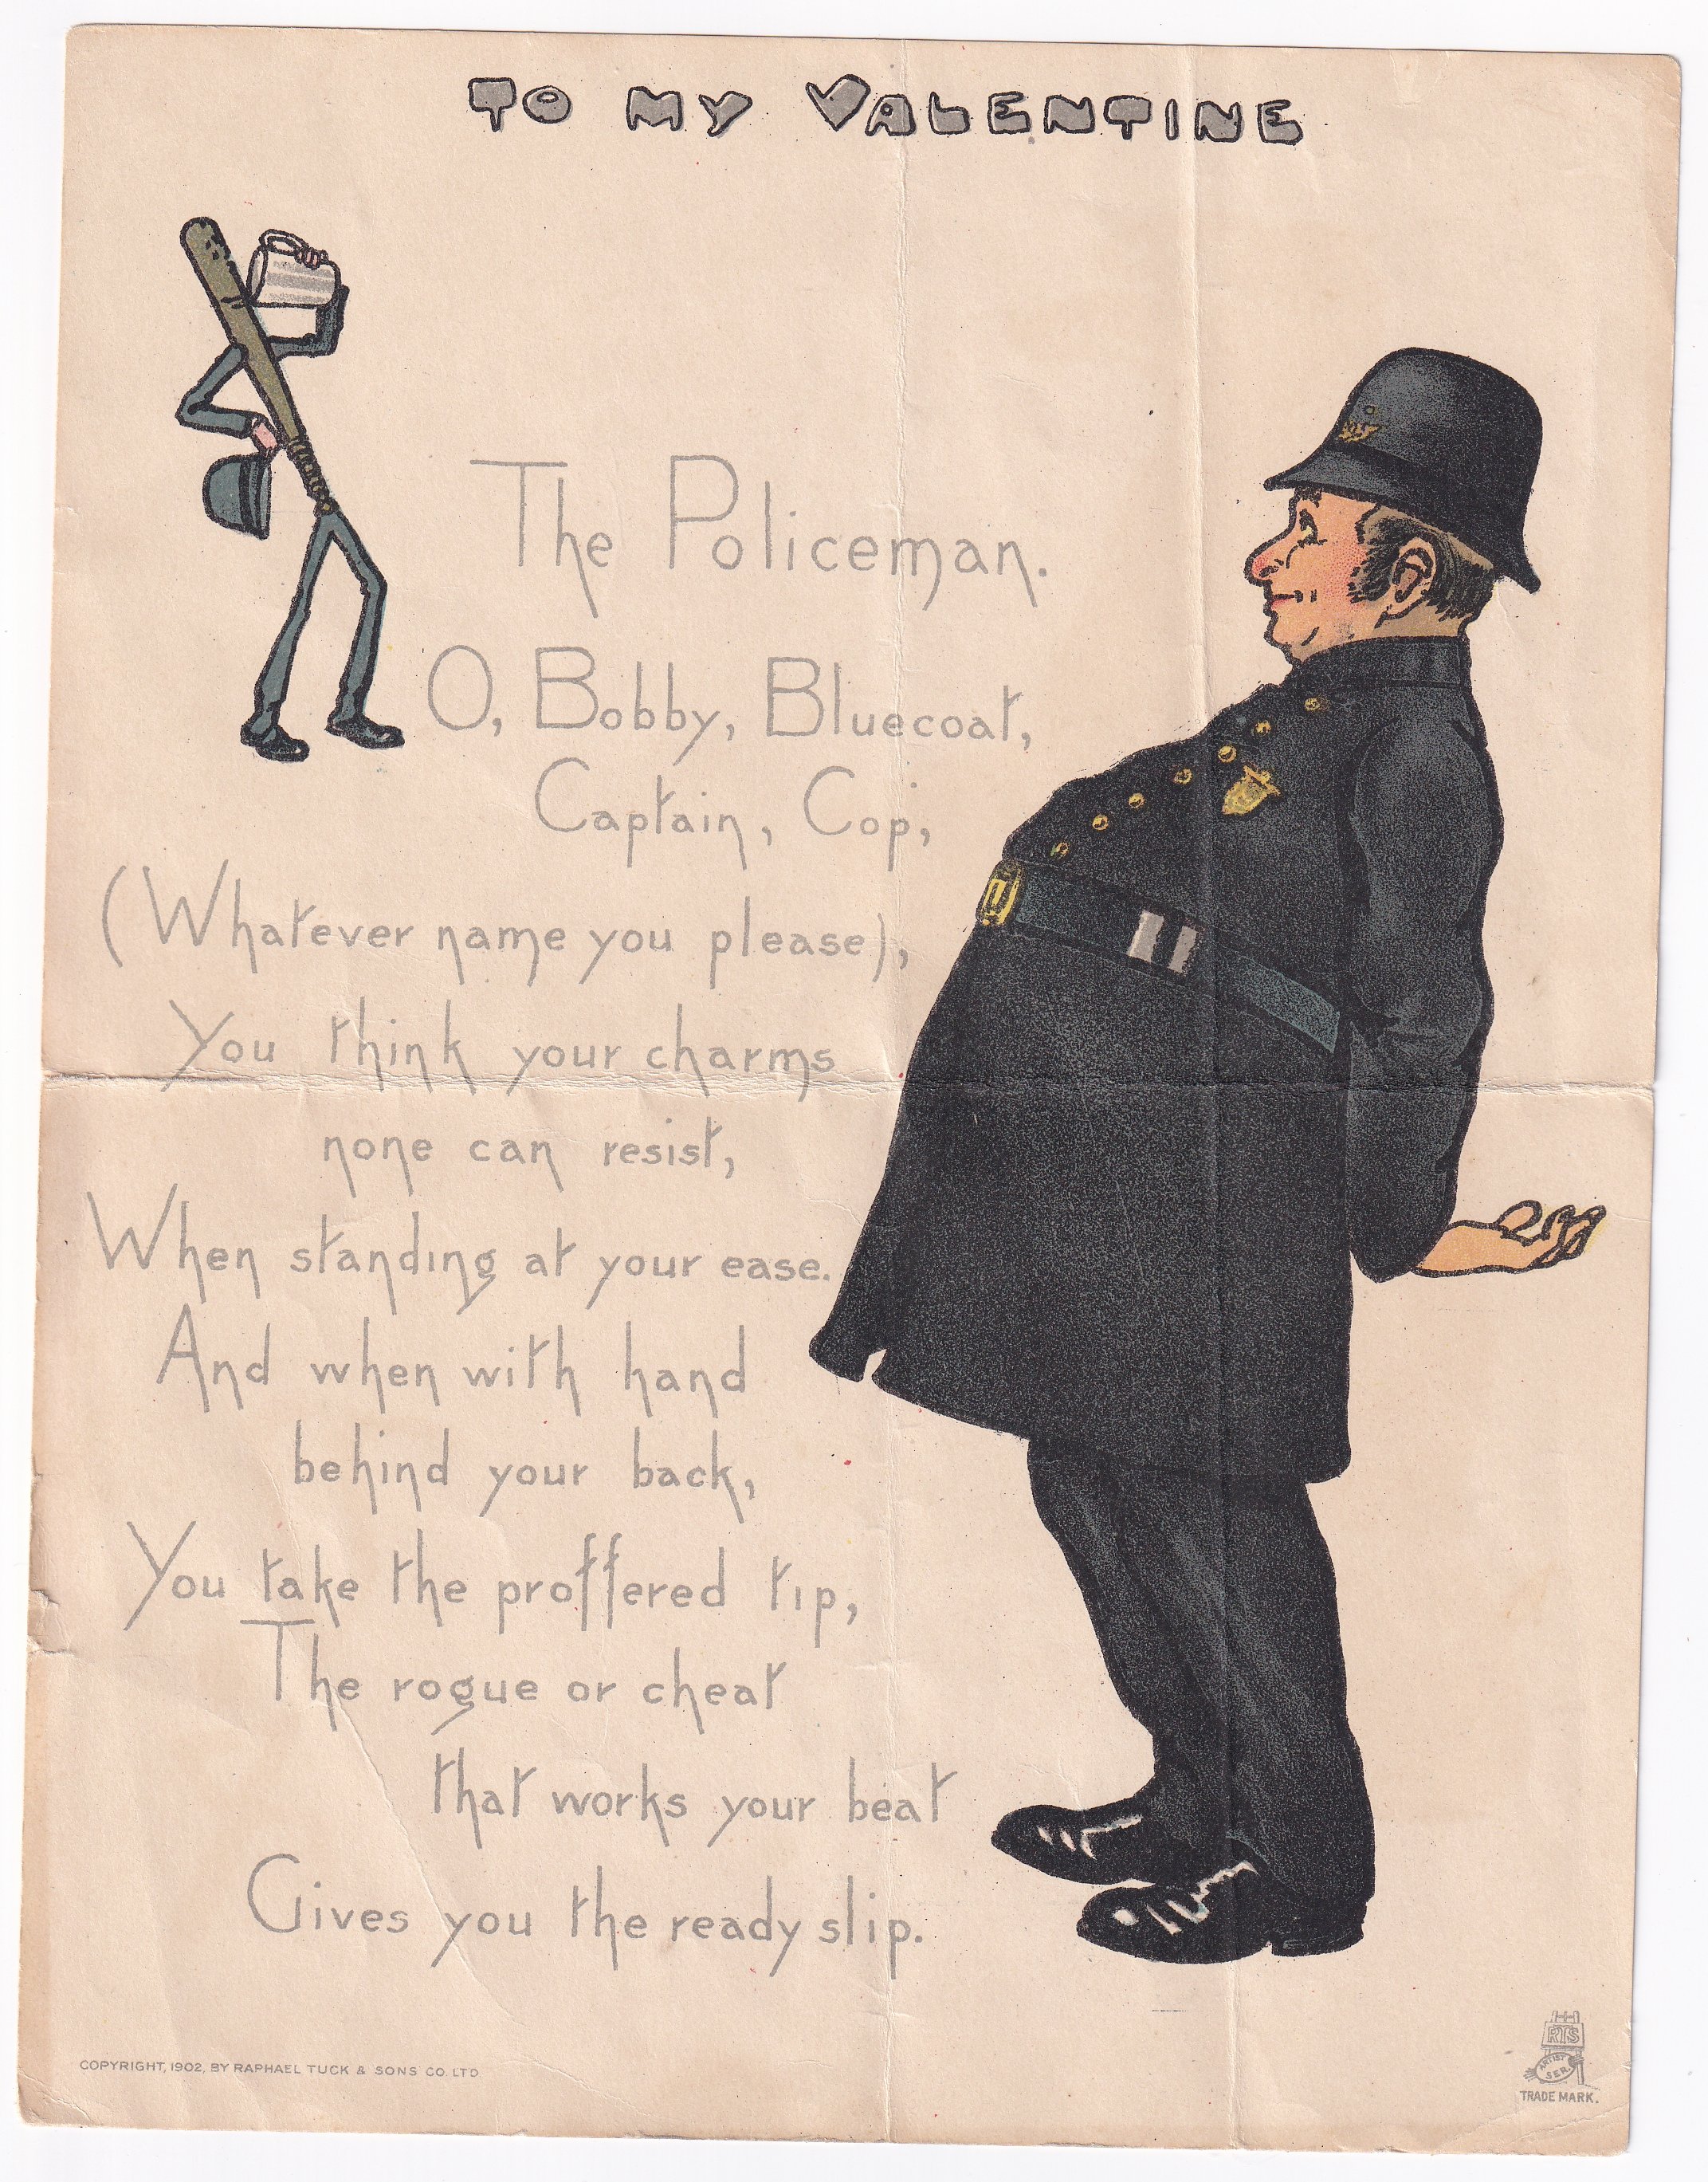 TO MY VALENTINE
The Policeman.
O, Bobby, Bluecoat,
Captain, Cop,
(Whatever name you please),
You think your charms
none can resist,
When standing at your ease.
And when with hand
behind your back,
You take the proffered tip,
The rogue or cheat
that works your beat
Gives you the ready slip.
COPYRIGHT, 1902, BY RAPHAEL TUCK & SONS CO. LTD
RTS
ARTIST
SER.
TRADE MARK.